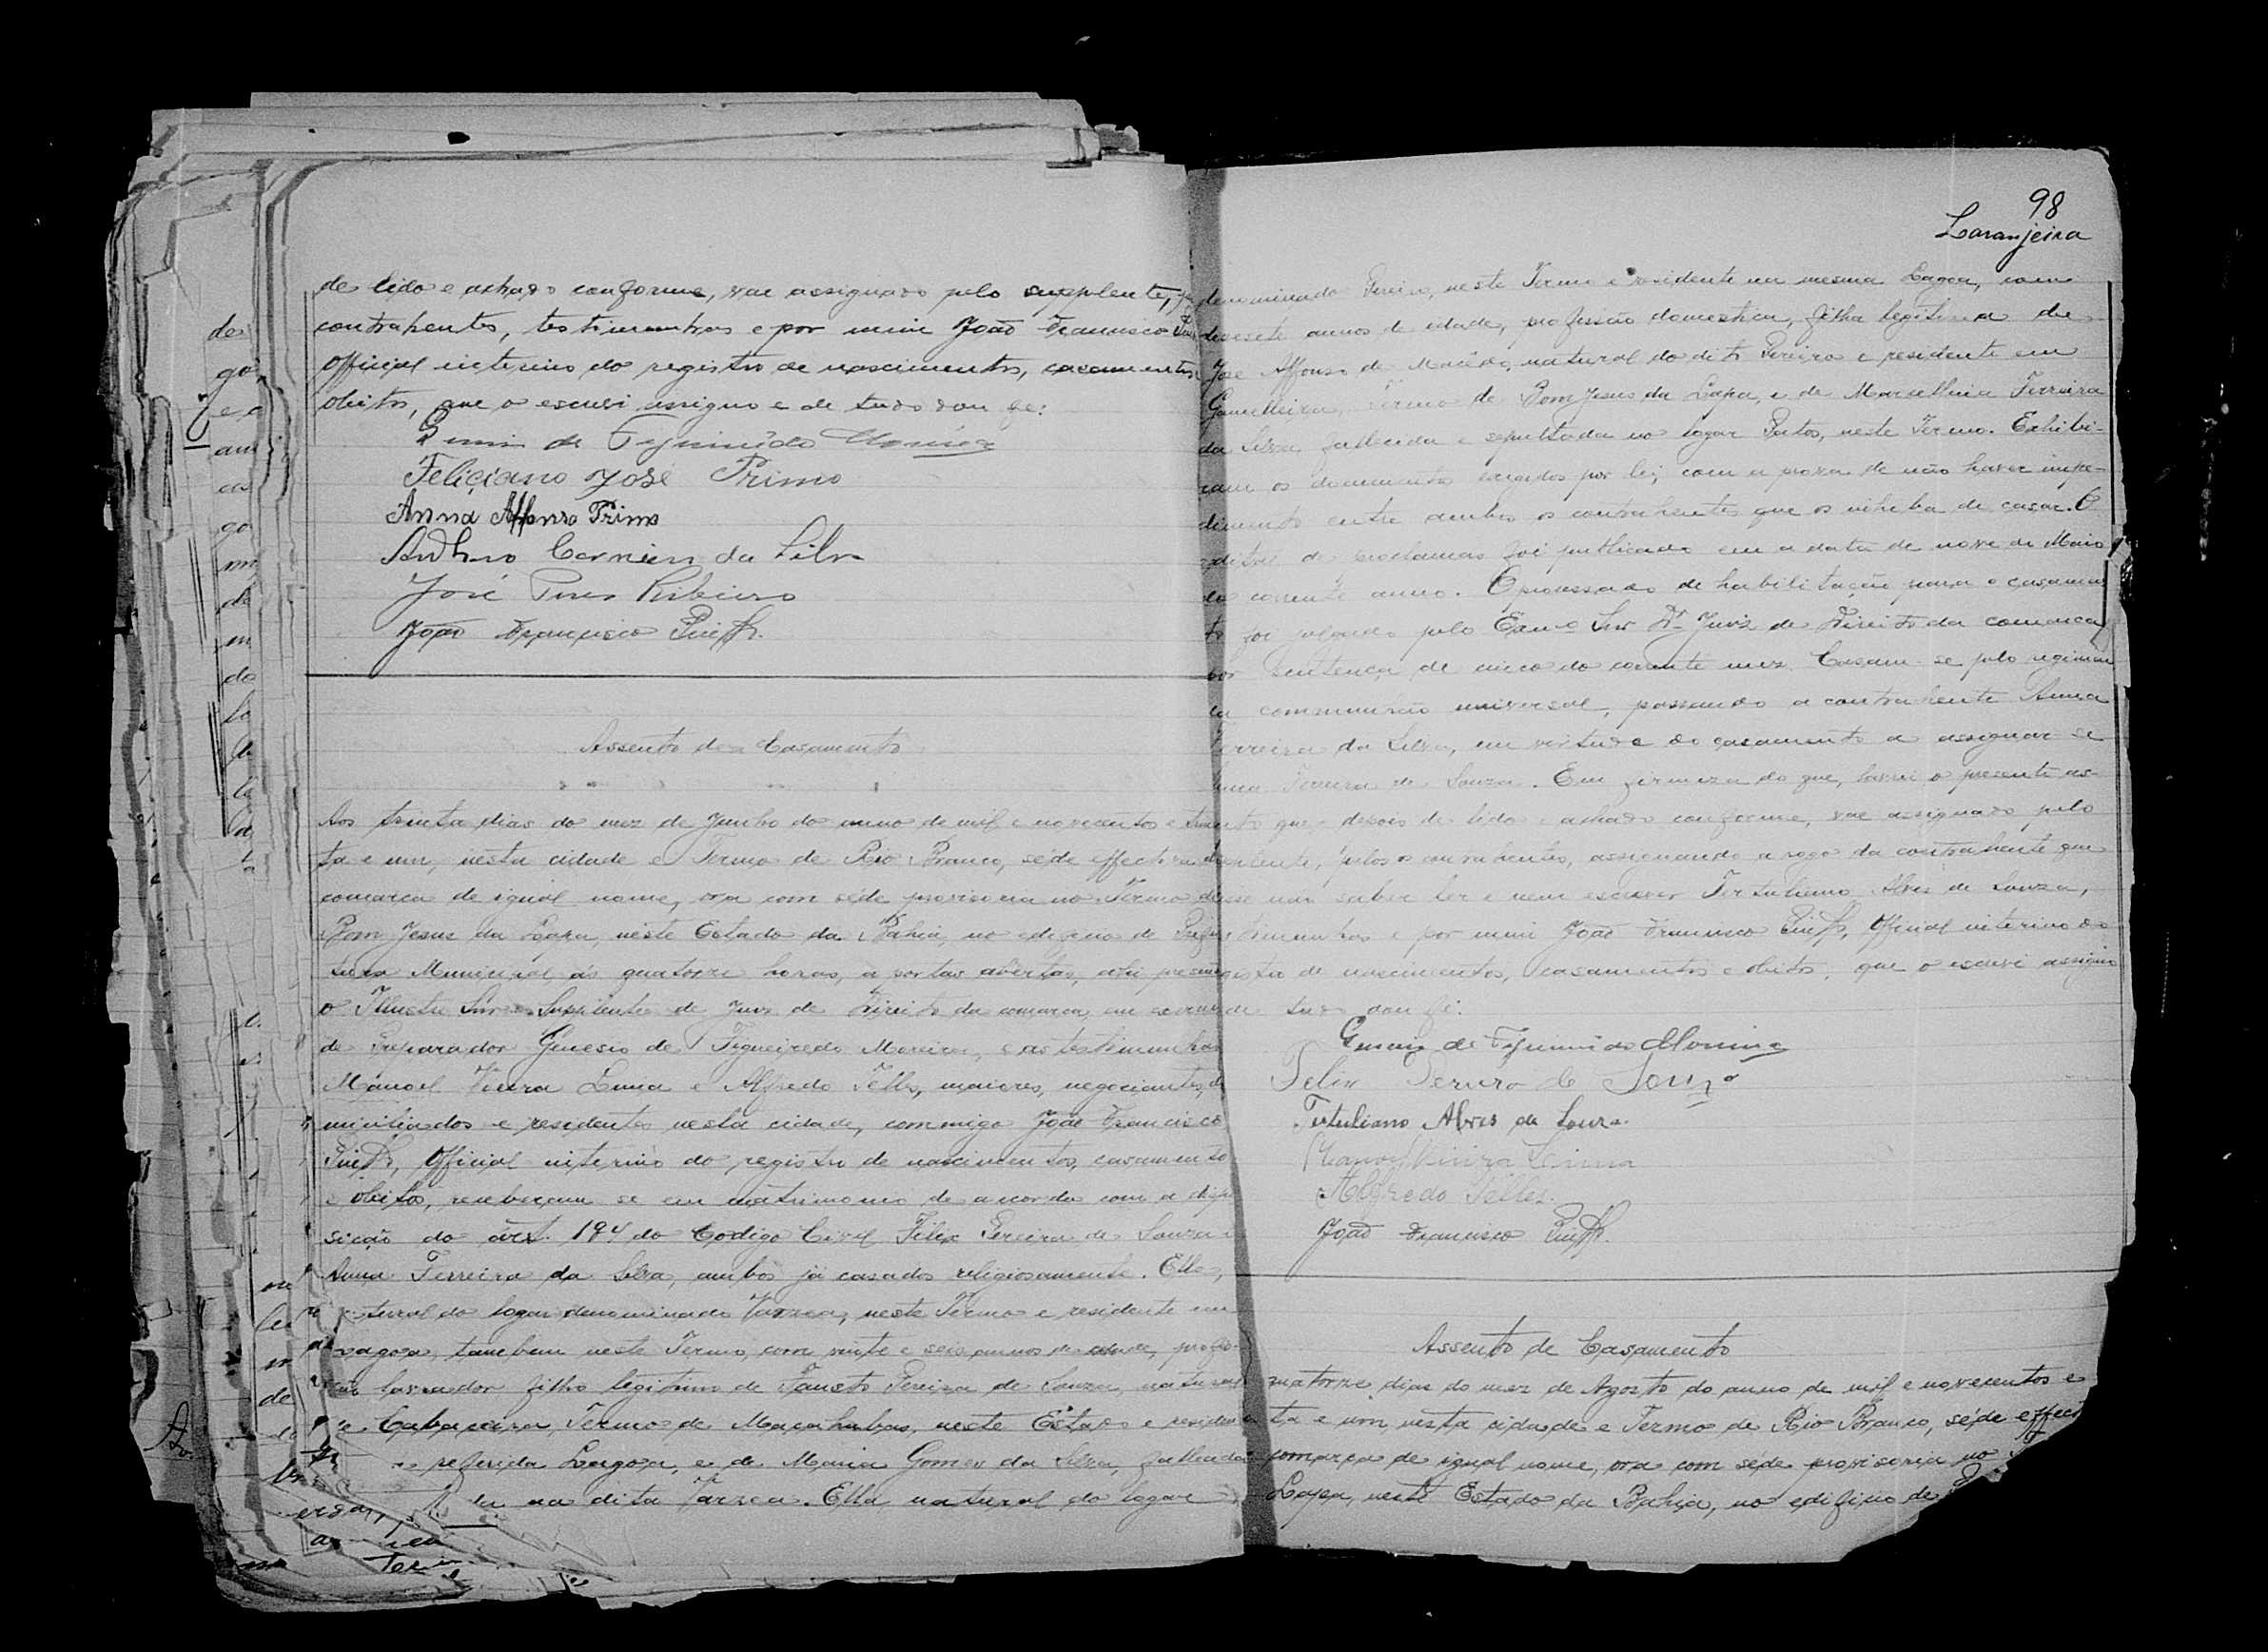 de lido e achado conforme, vae assignado pelo supplente,
contrahentes, testimunhas e por mim João Francisco
Official interino do registro de nascimentos, casamentos
obitos, que o escrevi assigno e de tudo dou fé:
de Figueirêdo Moreira
Feliciano José Primo
Anna Affonso Primo
da Silva
José Pires Ribeiro
João Francisco
Assento de Casamento
Aos trinta dias do mez de Junho do anno de mil e novecentos e trin
ta e um, nesta cidade e Termo de Rio Branco, séde effectiva da
comarca de igual nome, ora com séde provisoria no Termo de
Bom Jesus da Lapa, neste Estado da Bahia, no edificio de
tura Municipal, ás quatorze horas, a portas abertas, ahi
o Illustre Snr. Supplente de Juiz de Direito da comarca, em
de Preparador Genesio de Figueiredo Moreira, e as testimunhas
Manoel Vieira Lima e Alfredo Telles, maiores, negociantes, do
miciliados e residentes nesta cidade, commigo João Francisco
Official interino do registro de nascimentos, casamentos
e obitos, receberam se em matrimonio de accordo com a dispo
sição do art. 194 do Codigo Civil Felix Pereira de Souza e
Anna Ferreira da Silva, ambos já casados religiosamente. Elle,
natural do logar denominado Varzea, neste Termo e residente em
Lagoa, tambem neste Termo, com vinte e seis annos de edade,
lavrador, filho legitimo de Fausto Pereira de Souza, natural
de Cabaceira, Termo de Macahubas, neste Estado e residente
referida Lagoa, e de Maria Gomes da Silva, fallecida
na dita Varzea. Ella natural do logar
98
Laranjeira
denominado Pereiro, neste Termo e residente na mesma Lagoa, com
desesete annos de idade, profissão domestica, filha legitima de
José Affonso de Macêdo, natural do dito Pereiro e residente em
Gamelleira, Termo de Bom Jesus da Lapa, e de Marcellina Ferreira
da Silva, fallecida e sepultada no logar Patos, neste Termo. Exhibi-
ram os documentos exigidos por lei, com a prova de não haver impe-
dimento entre ambos os contrahentes que os inhiba de casar. O
edital de proclamas foi publicado em a data de nove de Maio
do corrente anno. O processado de habilitação para o casamen
to foi julgado pelo Exmo Snr Dr Juiz de Direito da comarca
por sentença de cinco do corrente mez. Casam-se pelo regimen
da communhão universal, passando a contrahente Anna
Ferreira da Silva, em virtude do casamento a assignar se
Anna Ferreira de Souza. Em firmeza do que, lavrei o presente as-
sento que, depois de lido e achado conforme, vae assignado pelo
supplente, pelos contrahentes, assignando a rogo da contrahente que
disse não saber ler e nem escrever Tertuliano Alves de Souza,
testimunhas e por mim João Francisco Official interino do
registro de nascimentos, casamentos e obitos, que o escrevi assigno
e de tudo dou fé:
de Figueirêdo Moreira
Felix Pereira de Souza
Tertuliano Alves de Souza.
Manoel Vieira Lima
Alfredo Telles.
João Francisco
Assento de Casamento
quatorze dias do mez de Agosto do anno de mil e novecentos e
ta e um, nesta cidade e Termo de Rio Branco, séde effec
comarca de igual nome, ora com séde provisoria no
Lapa, neste Estado da Bahia, no edificio de